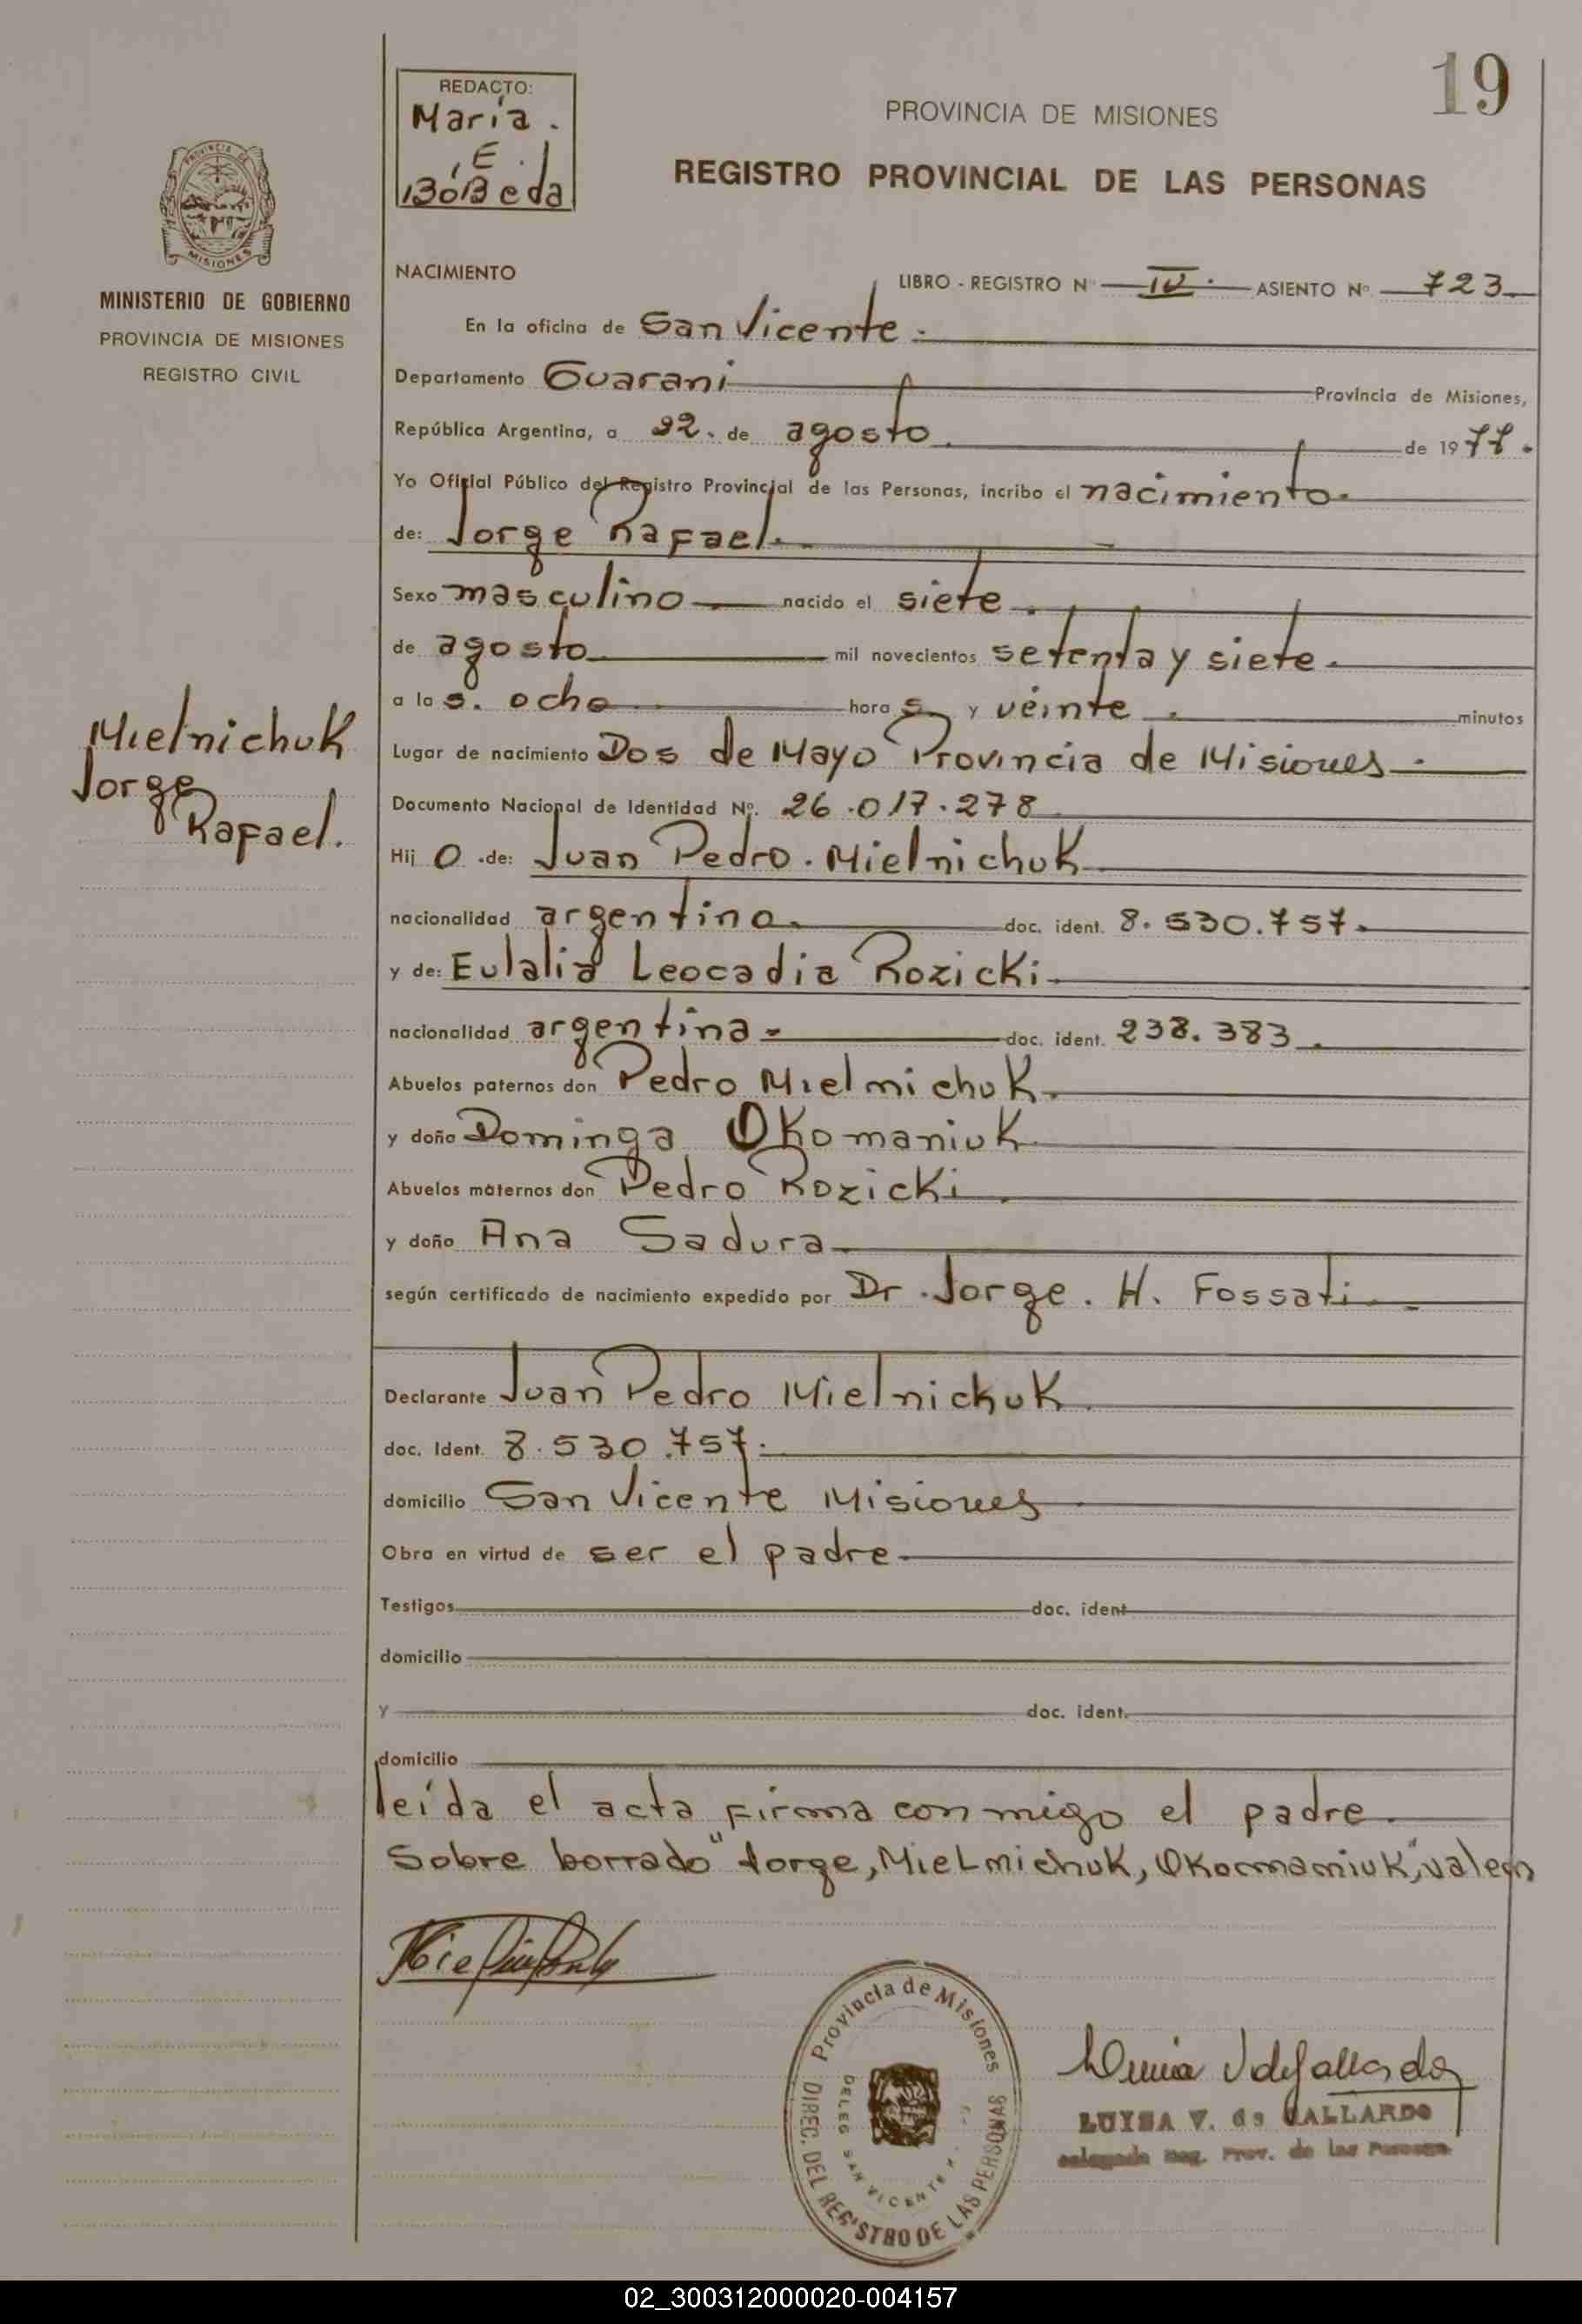 19
REDACTO:
María.
E.
BóBeda
PROVINCIA DE MISIONES
REGISTRO PROVINCIAL DE LAS PERSONAS
PROVINCIA DE
MISIONES
MINISTERIO DE GOBIERNO
PROVINCIA DE MISIONES
REGISTRO CIVIL
NACIMIENTO
LIBRO - REGISTRO Nº IV. ASIENTO Nº 723
En la oficina de San Vicente.
Departamento Guarani Provincia de Misiones,
República Argentina, a 22. de agosto. de 1977.
Yo Oficial Público del Registro Provincial de las Personas, incribo el nacimiento.
de: Jorge Rafael.
Sexo masculino nacido el siete.
de agosto mil novecientos setenta y siete.
a las. ocho hora s y veinte. minutos
Lugar de nacimiento Dos de Mayo Provincia de Misiones.
Documento Nacional de Identidad Nº. 26.017.278
Hij o de: Juan Pedro. Mielnichuk
nacionalidad argentino. doc. ident. 8.530.757.
y de: Eulalia Leocadia Rozicki.
nacionalidad argentina. doc. ident. 238.383.
Abuelos paternos don Pedro Mielmichuk.
y doña Dominga Okomaniuk
Abuelos maternos don Pedro Rozicki.
y doña Ana Sadura
según certificado de nacimiento expedido por Dr. Jorge. H. Fossati
Mielnichuk
Jorge
Rafael.
Declarante Juan Pedro Mielnichuk.
doc. Ident. 8.530.757.
domicilio San Vicente Misiones
Obra en virtud de ser el padre.
Testigos doc. ident
domicilio
y doc. ident.
domicilio
leída el acta firma conmigo el padre.
Sobre borrado "Jorge, Mielmichuk, Okormaniuk", valen
Provincia de Misiones
DIREC. DEL REGISTRO DE LAS PERSONAS
DELEG SAN VICENTE
LUISA V. de GALLARDO
Delegada Reg. Prov. de las Personas
02_300312000020-004157